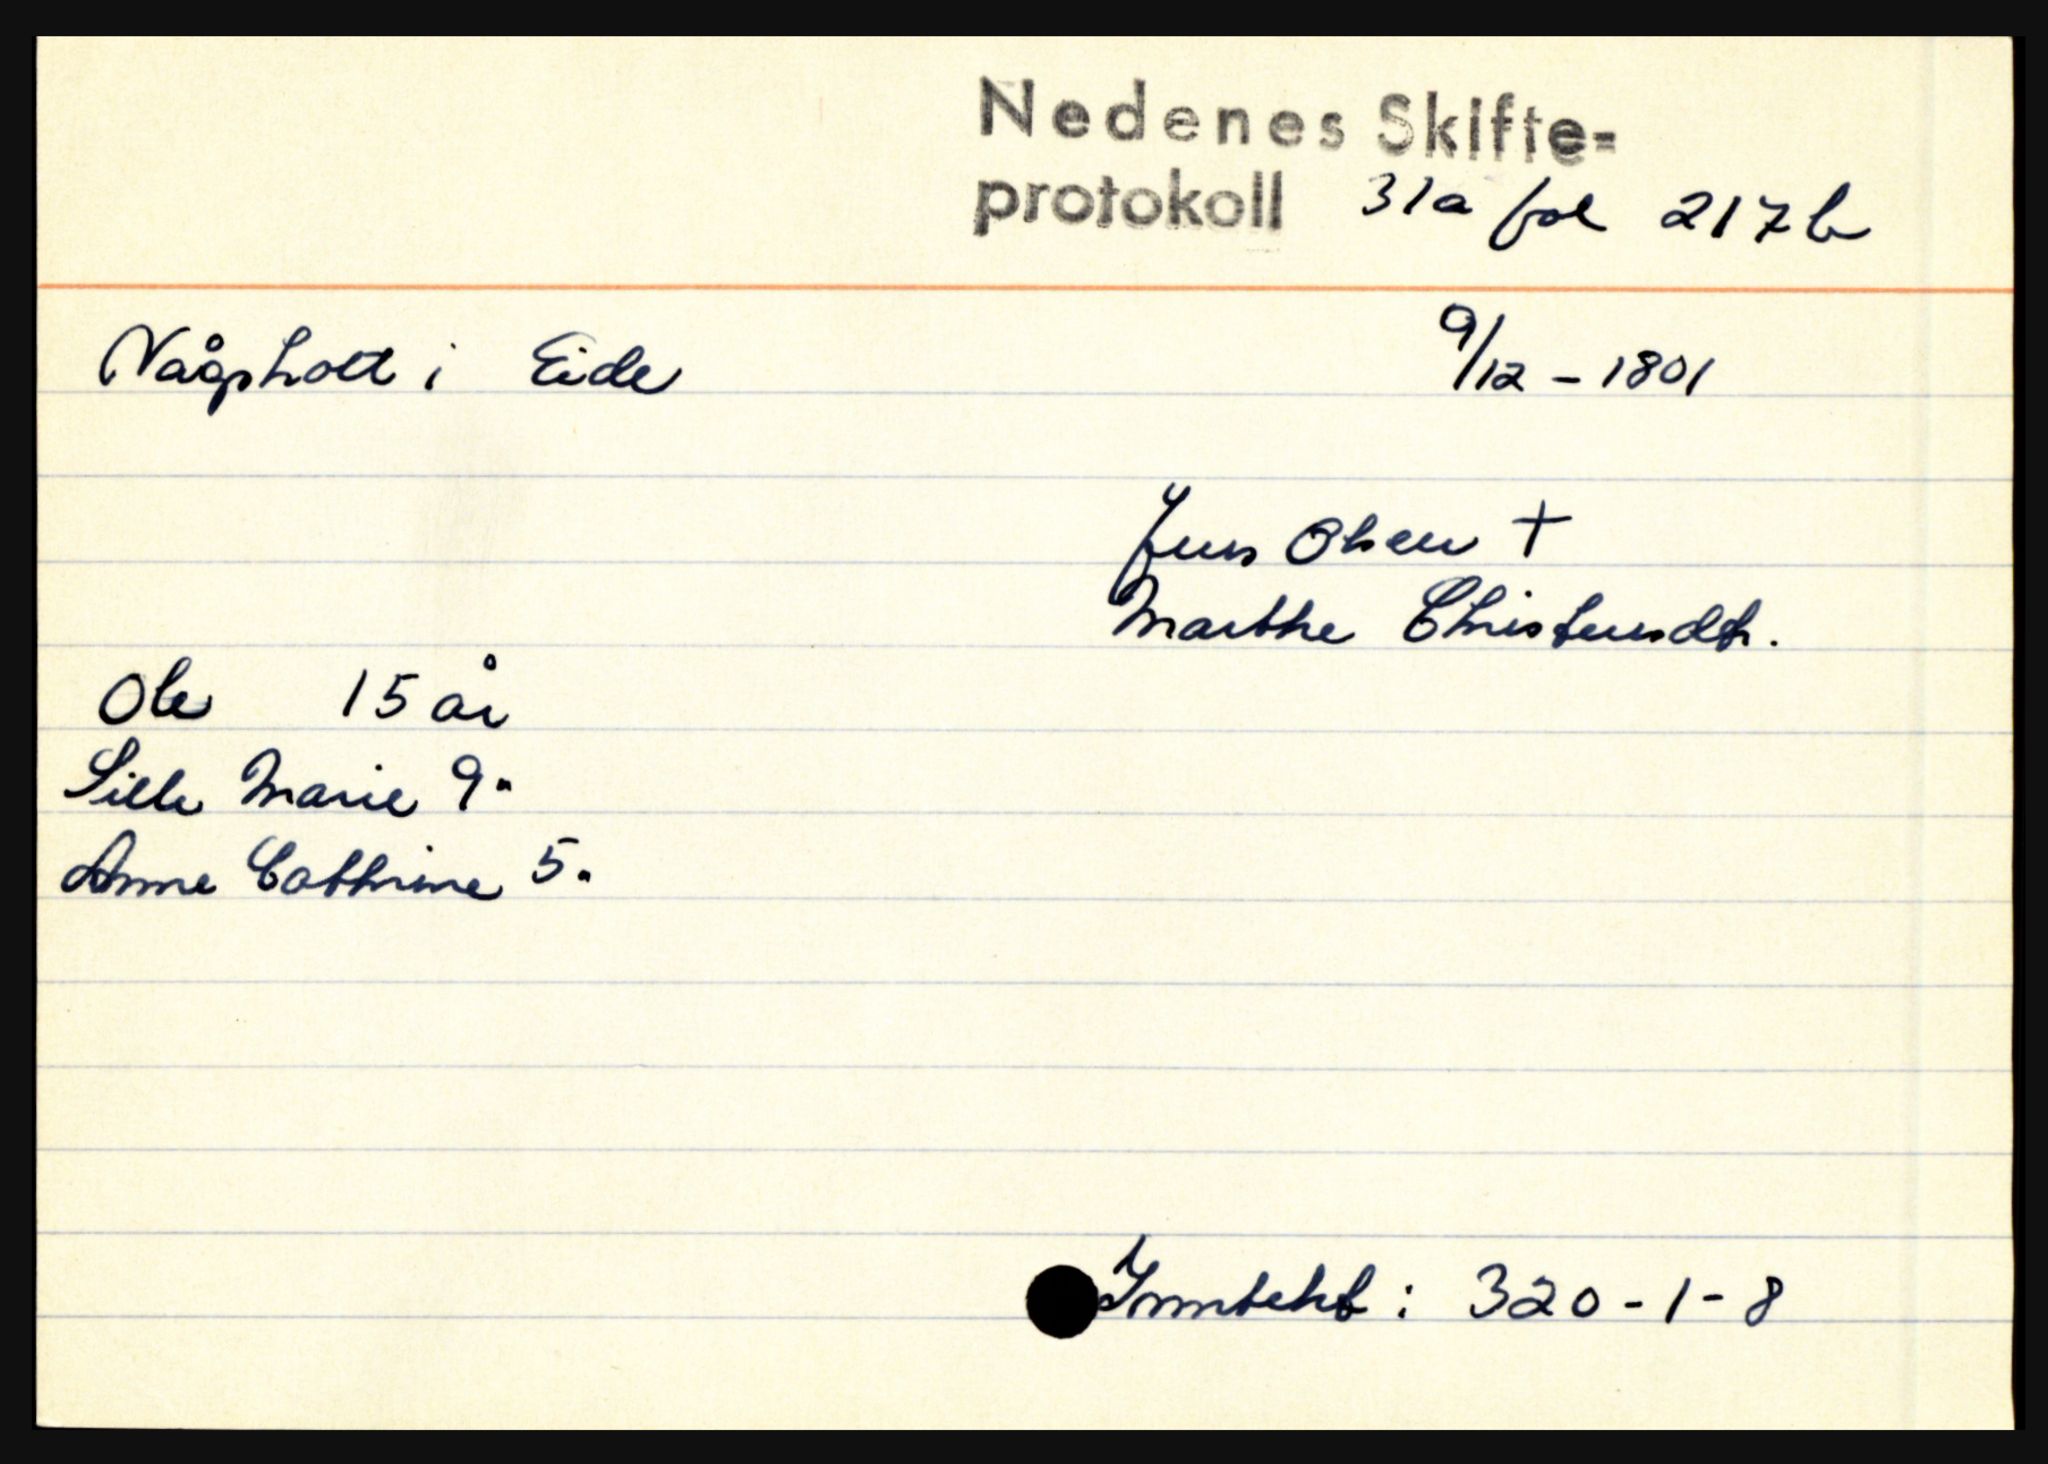 Nedenes Skifte=
protokoll 31a fol 217b
Vågsholt i Eide 9/12 - 1801
Jens Olsen +
Marthe Christensdtr.
Ole 15 år
Sille Marie 9 "
Anne Cathrine 5 "
Inntekt : 320 - 1 - 8